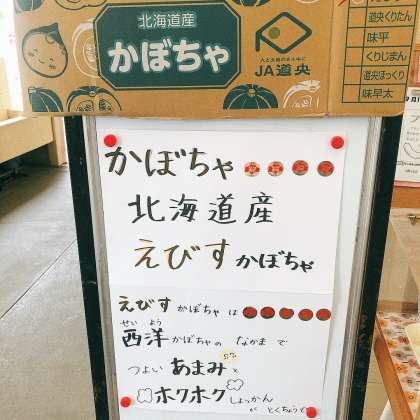 北海道産
かぼちゃ
人と大地のまん中に
JA道央
道央くりたん
味平
くりじまん
道央ほっくり
味早太
かぼちゃ
北海道産
えびすかぼちゃ
えびす かぼちゃ は
せい よう
西洋かぼちゃの なかま で
つよい あまみ と
ホクホク しょっかん
が とくちょうで